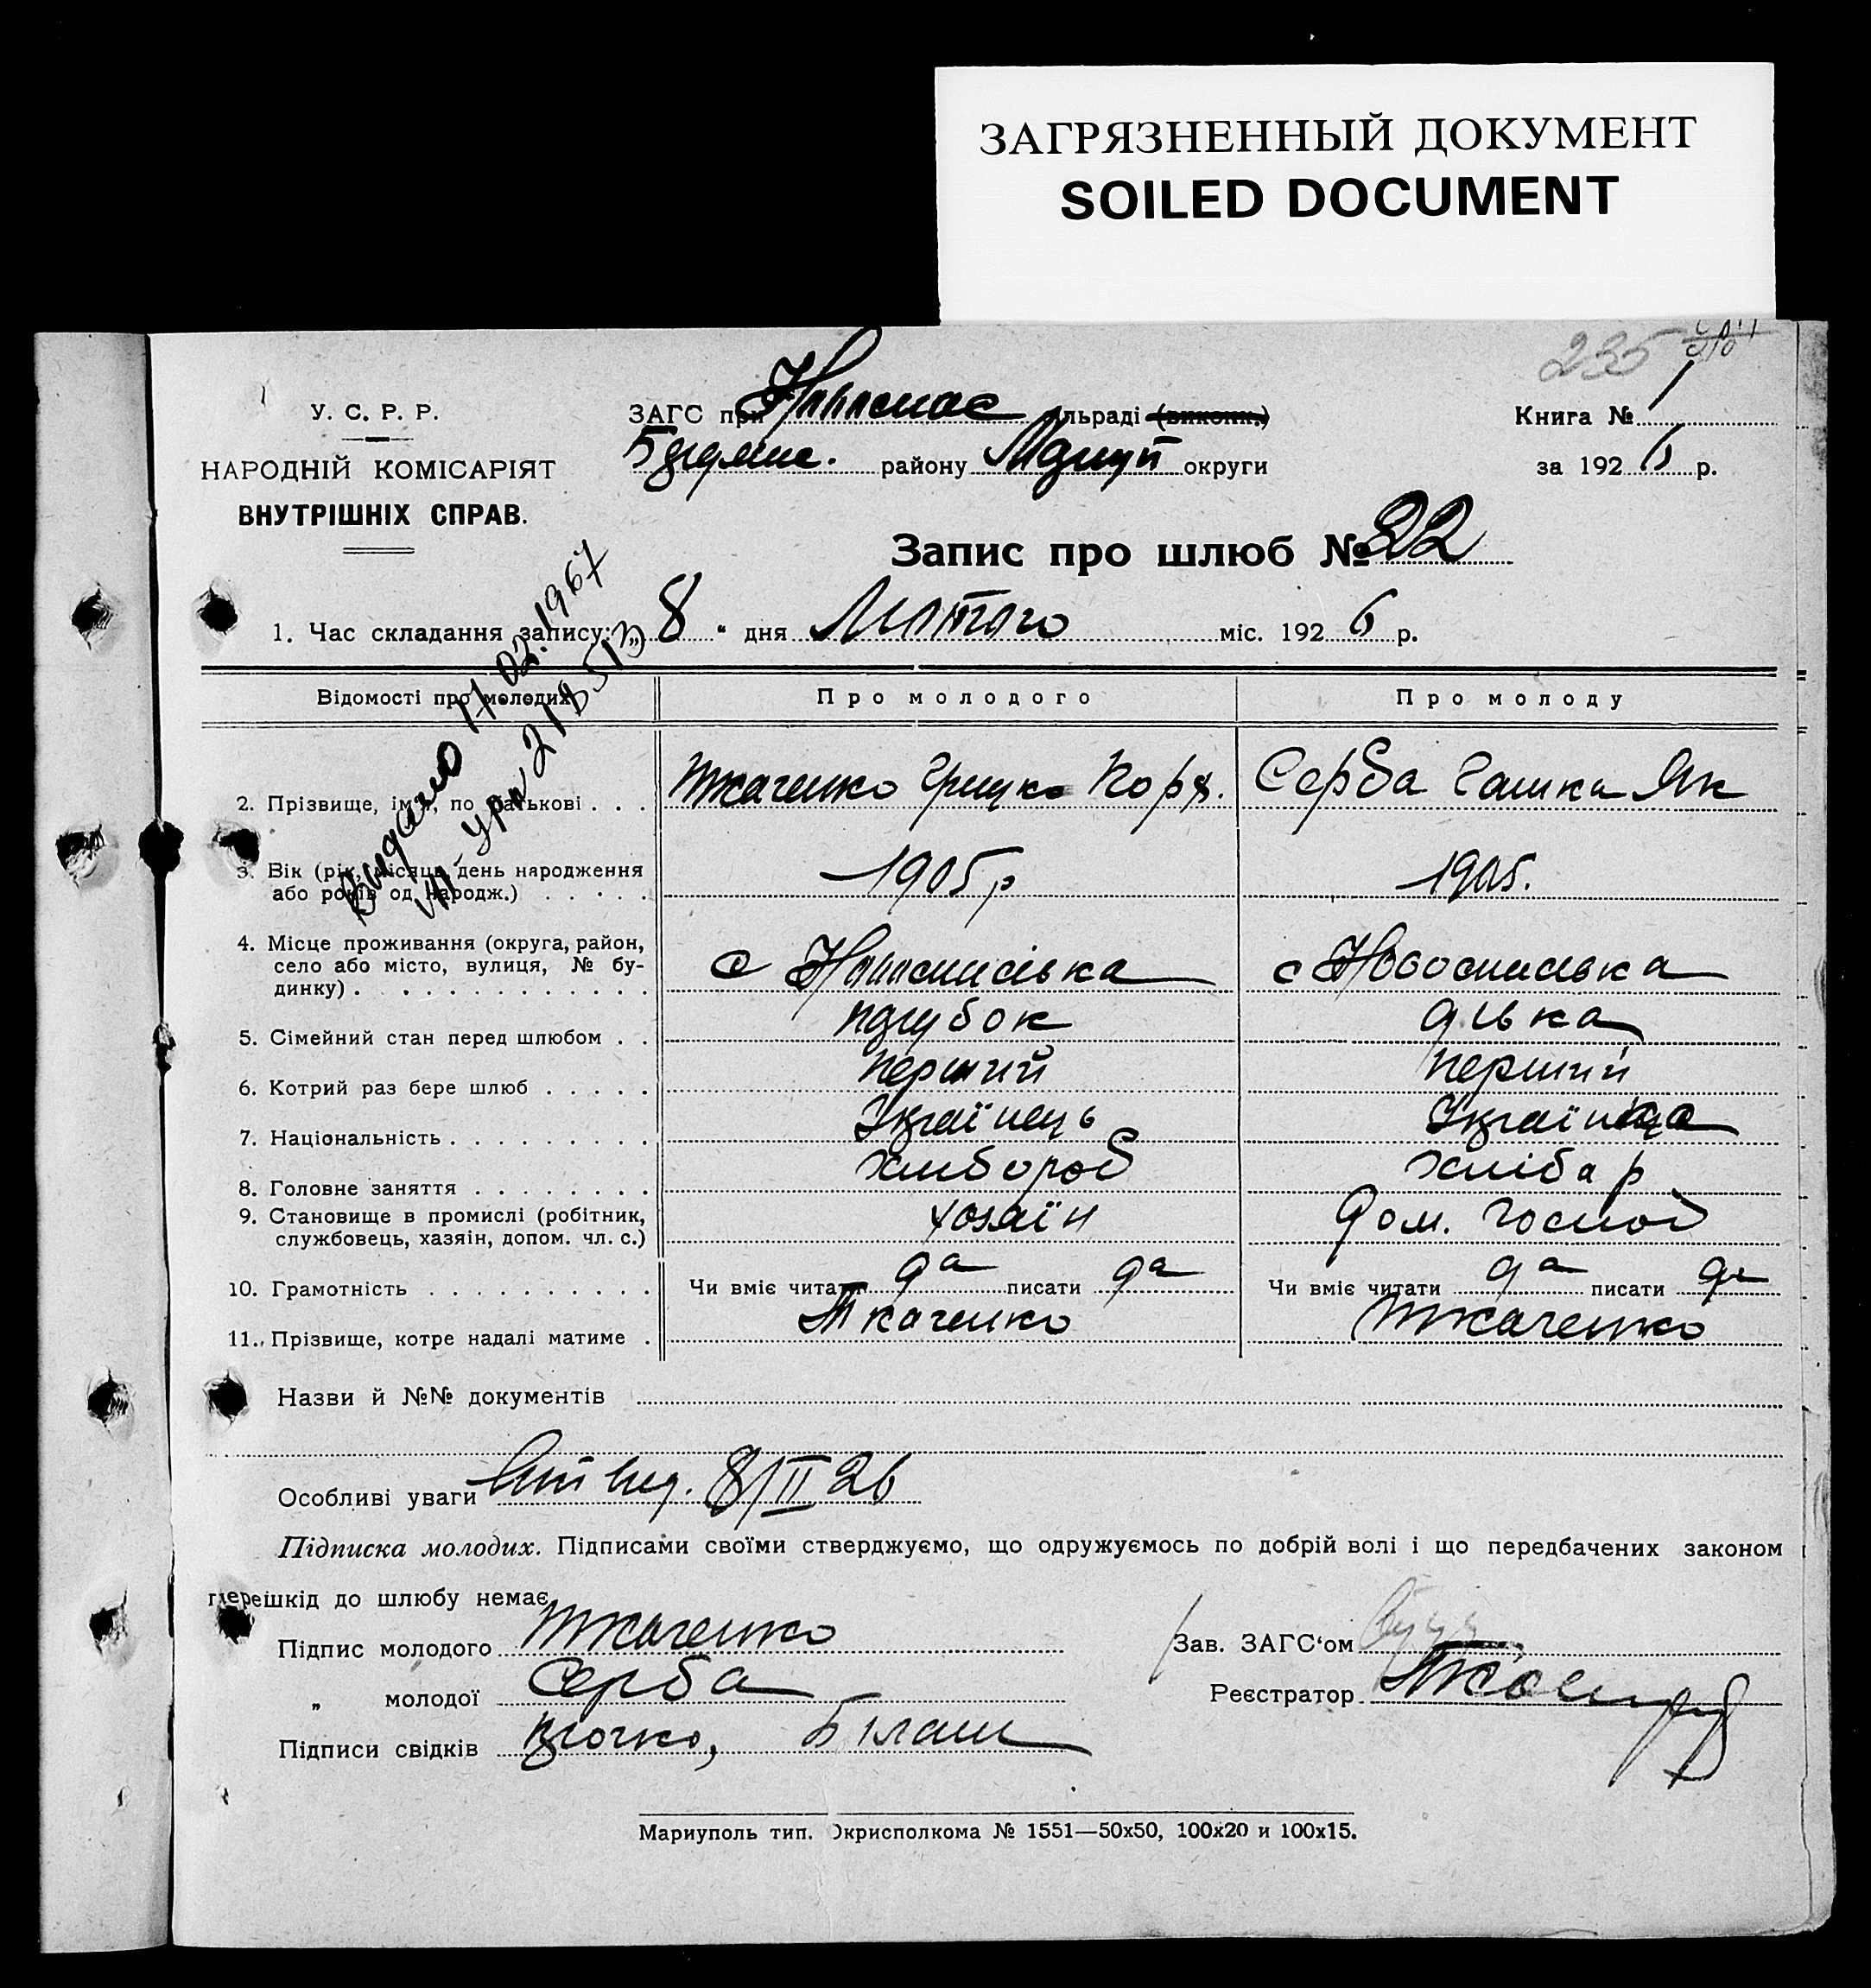 ЗАГРЯЗНЕННЫЙ ДОКУМЕНТ
SOILED DOCUMENT
235
У. С. Р. Р.
НАРОДНІЙ КОМІСАРІЯТ
ВНУТРІШНІХ СПРАВ.
ЗАГС при льраді (виконк.)
району округи
Книга № 1
за 1926 р.
Запис про шлюб № 22
1. Час складання запису: „ 8 “ дня Лютого міс. 1926 р.
Видано 11.02.1967
Відомості про молодих
Про молодого
Про молоду
2. Прізвище, ім'я, по батькові . . . Ткаченко Грицко Серба Гашка Як
3. Вік (рік, місяць, день народження
або років од народж.) . . . . . 1905 р 1905.
4. Місце проживання (округа, район,
село або місто, вулиця, № бу-
динку) . . . . . . . . . . . . с с
5. Сімейний стан перед шлюбом . . парубок дівка
6. Котрий раз бере шлюб . . . . . перший перший
7. Національність . . . . . . . . . Українець
8. Головне заняття . . . . . . . . хлибороб
9. Становище в промислі (робітник,
службовець, хазяін, допом. чл. с.) хозяїн дом. госпо
10. Грамотність . . . . . . . . . . Чи вміє читати да писати да Чи вміє читати да писати да
11. Прізвище, котре надалі матиме . Ткаченко Ткаченко
Назви й №№ документів
Особливі уваги 8/II 26
Підписка молодих. Підписами своїми стверджуємо, що одружуємось по добрій волі і що передбачених законом
перешкід до шлюбу немає
Підпис молодого Ткаченко
„ молодої Серба
Підписи свідків Білаш
Зав. ЗАГС‘ом
Реєстратор
Мариуполь тип. Окрисполкома № 1551—50х50, 100х20 и 100х15.